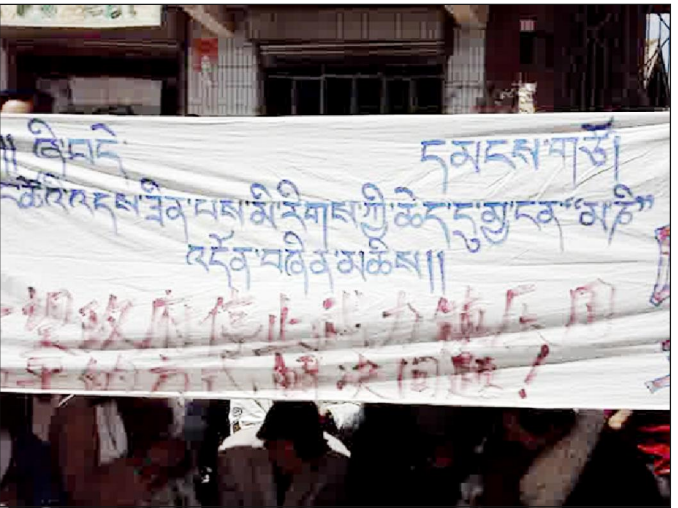 །། ཞི་བདེ་ དམངས་གཙོ།
འདས་ཟིན་པས་མི་རིགས་ཀྱི་ཆེད་དུ་མྱ་ངན་“མ་ཎི”
འདོན་བཞིན་མཆིས།།
望政府停止武力镇压用
平的方式,解决问题!